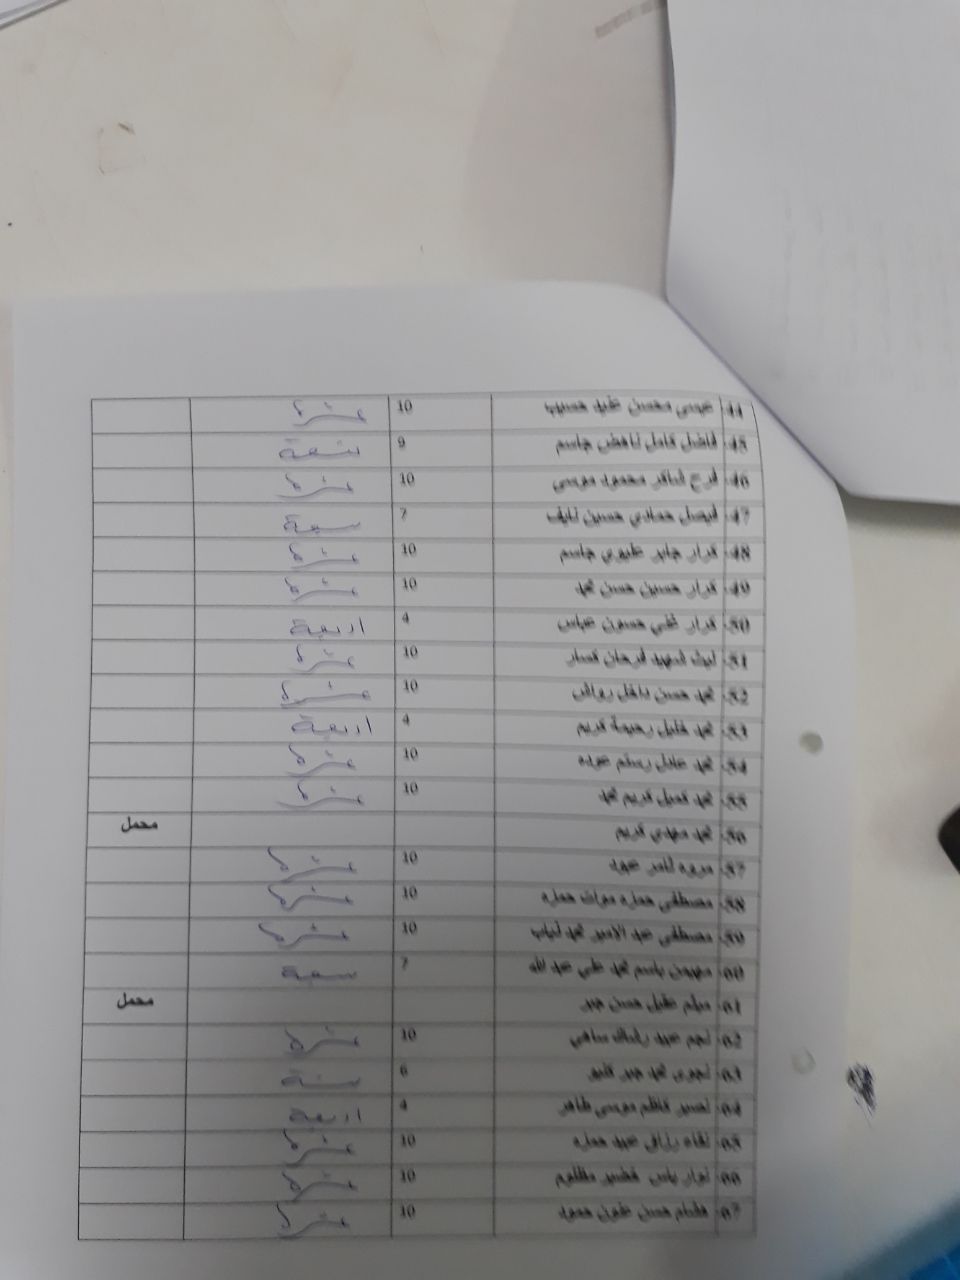 44. عيسى محسن عليد حسيب 10 عشرة
45. فاضل كامل ناهض جاسم 9 تسعة
46. فرج شاكر محمود موسى 10 عشرة
47. فيصل حمادي حسين نايف 7 سبعة
48. كرار جابر عليوي جاسم 10 عشرة
49. كرار حسين حسن محمد 10 عشرة
50. كرار علي حسون عباس 4 اربعة
51. ليث شهيد فرحان كسار 10 عشرة
52. محمد حسن داخل 10 عشرة
53. محمد خليل رحيمة كريم 4 اربعة
54. محمد عادل رستم عوده 10 عشرة
55. محمد كميل كريم محمد 10 عشرة
56. محمد مهدي كريم محمل
57. مروه ثامر عبود 10 عشرة
58. مصطفى حمزه حمزه 10 عشرة
59. مصطفى عبد الامير محمد 10 عشرة
60. مهيمن باسم محمد علي عبد الله 7 سبعة
61. ميثم عقيل حسن جبر محمل
62. نجم عبيد ساهي 10 عشرة
63. نجوى محمد جبر 6 ستة
64. نصير كاظم موسى طاهر 4 اربعة
65. رزاق عبيد حمزه 10 عشرة
66. ياس خضير مظلوم 10 عشرة
67. هشام حسن علون حمود 10 عشرة